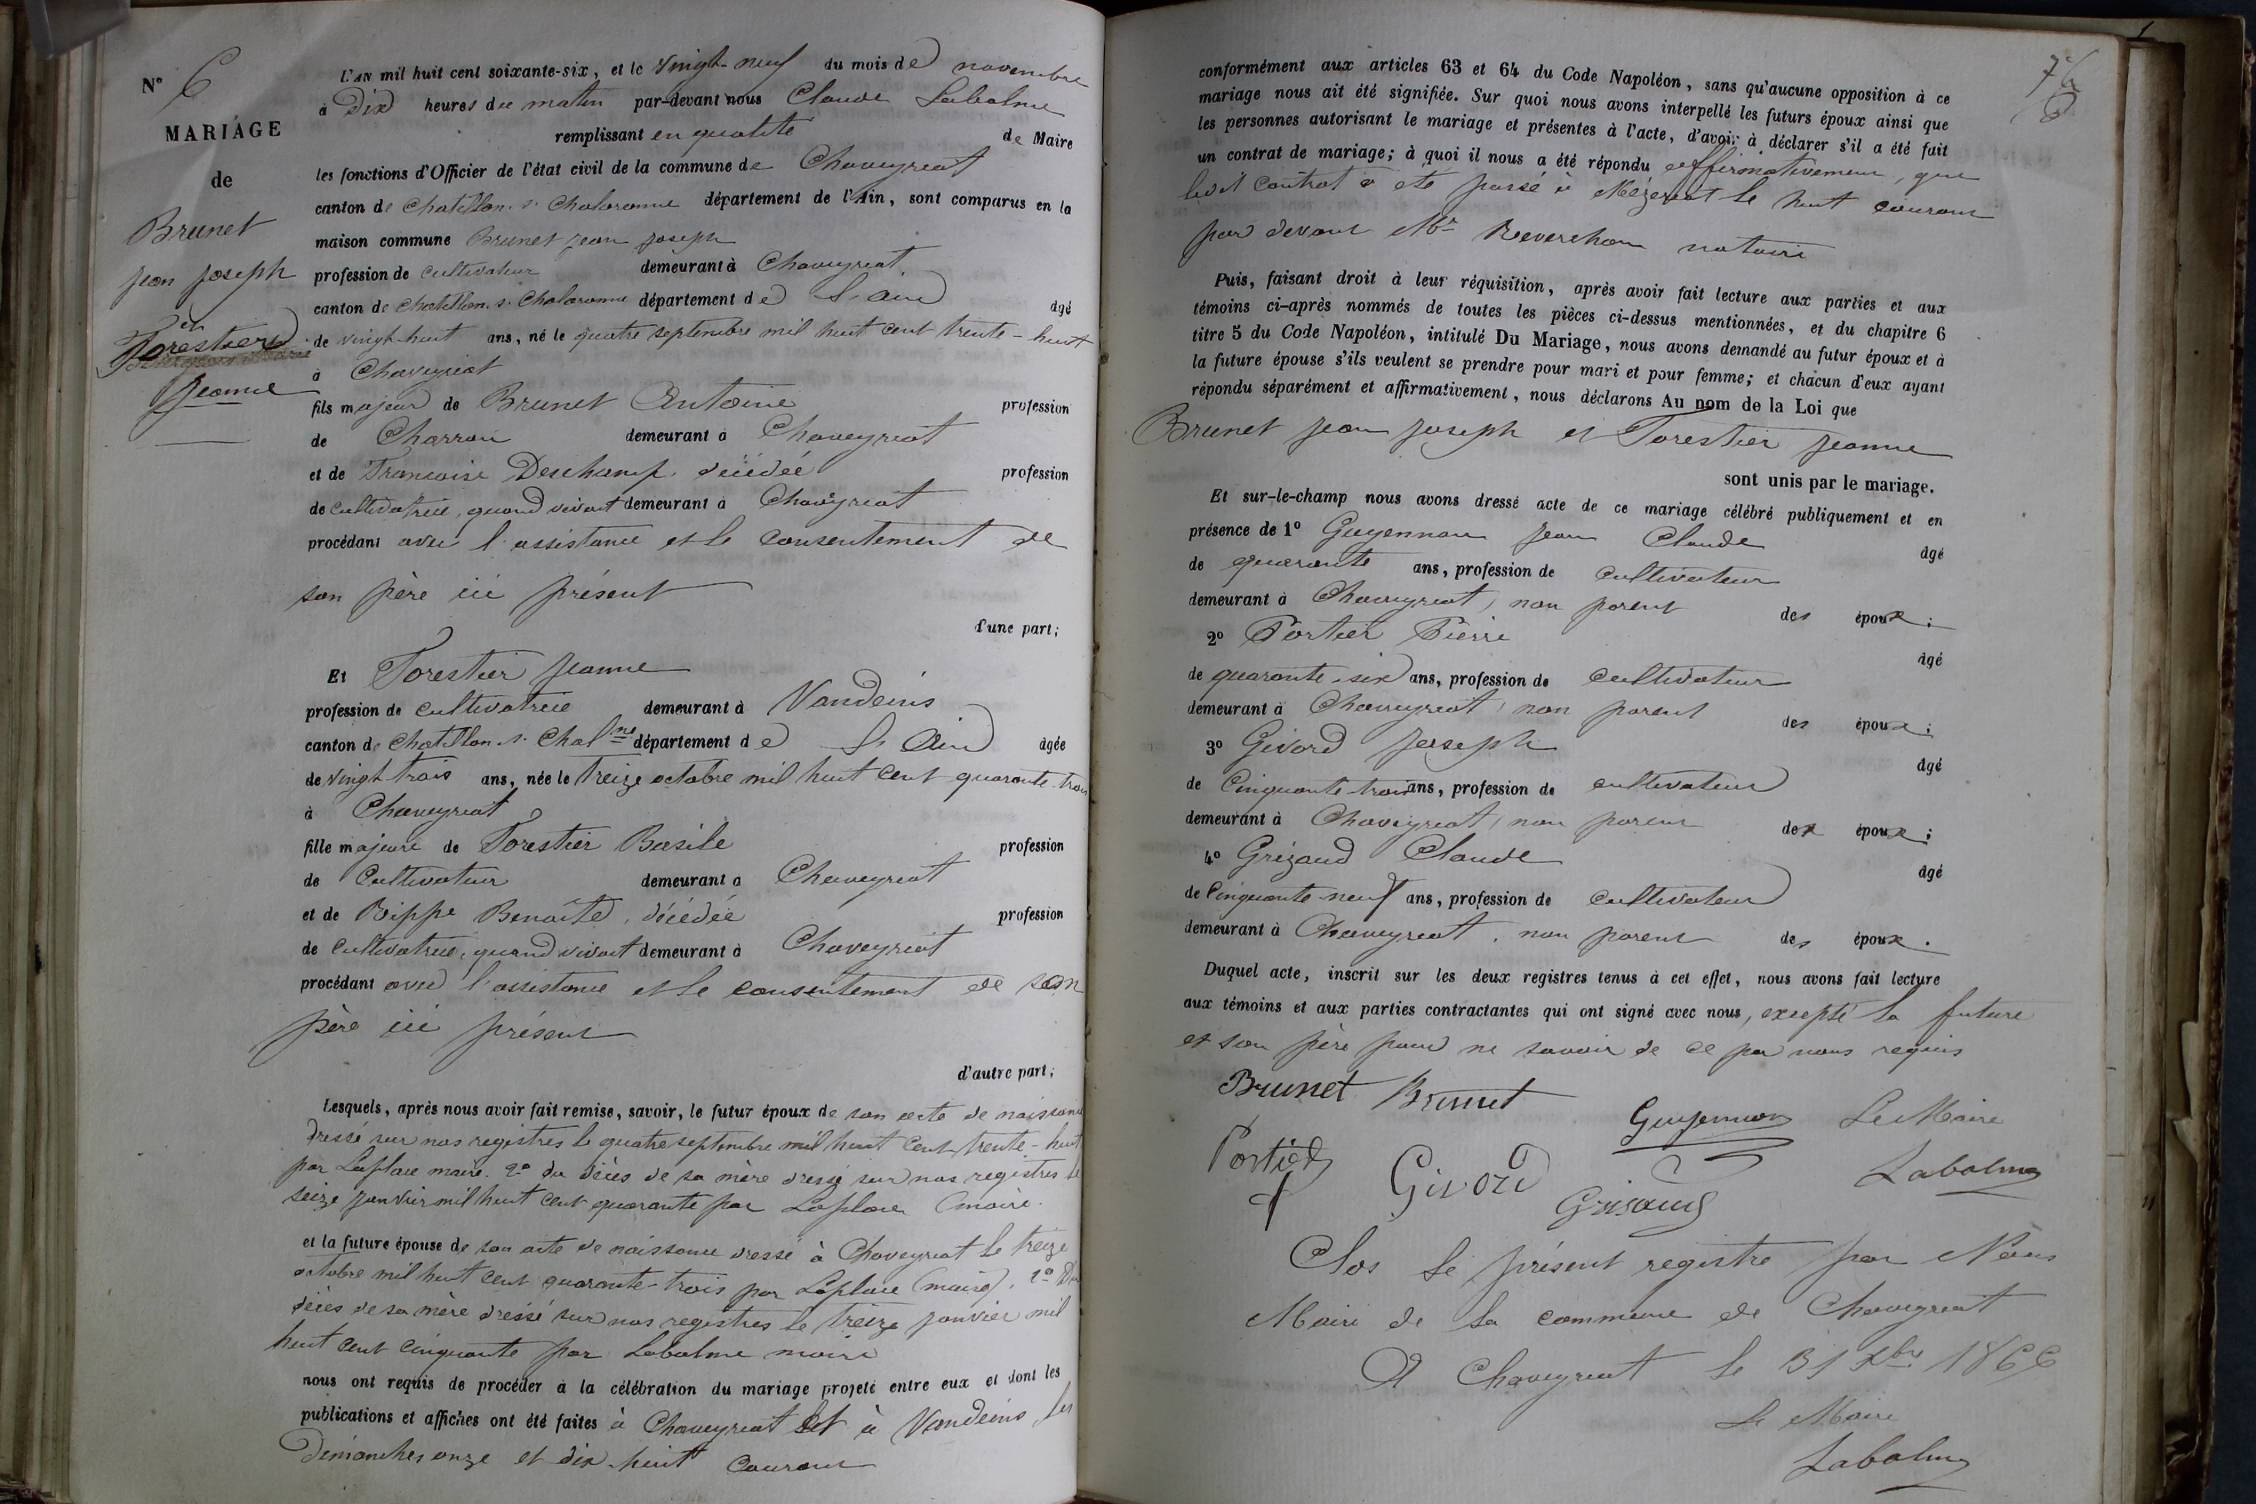 N° 6
MARIAGE
de
Brunet
jean joseph
et
Forestier
jeanne
L'AN mil huit cent soixante-six, et le vingt-neuf du mois de novembre
à Dix heures du matin par-devant nous Claude Labalme
remplissant en qualité de Maire
les fonctions d'Officier de l'état civil de la commune de Chaveyriat
canton de Chatillon s. Chalaronne département de l'Ain, sont comparus en la
maison commune Brunet jean joseph
profession de cultivateur demeurant à Chaveyriat
canton de Chatillon s. Chalaronne département de l'Ain âgé
de vingt-huit ans, né le quatre septembre mil huit cent trente-huit
à Chaveyriat
fils majeur de Brunet Antoine profession
de Charron demeurant à Chaveyriat
et de Francoise Deschamp décédée profession
de cultivatrice, quand vivait demeurant à Chaveyriat
procédant avec l'assistance et le consentement de
son père ici présent
d'une part;
Et Forestier jeanne
profession de cultivatrice demeurant à Vandeins
canton de Chatillon s. Chalne département de l'Ain âgée
de vingt trois ans, née le treize octobre mil huit cent quarante-trois
à Chaveyriat
fille majeure de Forestier Basile profession
de Cultivateur demeurant à Chaveyriat
et de Rippe Benoîte, décédée profession
de cultivatrice, quand vivait demeurant à Chaveyriat
procédant avec l'assistance et le consentement de son
père ici présent
d'autre part;
Lesquels, après nous avoir fait remise, savoir, le futur époux de son acte de naissance
dressé sur nos registres le quatre septembre mil huit cent trente-huit
par Laplace maire. 2° du décès de sa mère dressé sur nos registres le
seize janvier mil huit cent quarante par Laplace maire.
et la future épouse de son acte de naissance dressé à Chaveyriat le treize
octobre mil huit cent quarante-trois par Laplace (maire). 2° Du
décès de sa mère dressé sur nos registres le treize janvier mil
huit cent cinquante par Labalme maire
nous ont requis de procéder à la célébration du mariage projeté entre eux et dont les
publications et affiches ont été faites à Chaveyriat et à Vandeins les
Dimanches onze et dix-huit courant
76
conformément aux articles 63 et 64 du Code Napoléon, sans qu'aucune opposition à ce
mariage nous ait été signifiée. Sur quoi nous avons interpellé les futurs époux ainsi que
les personnes autorisant le mariage et présentes à l'acte, d'avoir à déclarer s'il a été fait
un contrat de mariage; à quoi il nous a été répondu affirmativement, que
ledit contrat a été passé à Mézeriat le huit courant
par devant Mr Reverchon notaire
Puis, faisant droit à leur réquisition, après avoir fait lecture aux parties et aux
témoins ci-après nommés de toutes les pièces ci-dessus mentionnées, et du chapitre 6
titre 5 du Code Napoléon, intitulé Du Mariage, nous avons demandé au futur époux et à
la future épouse s'ils veulent se prendre pour mari et pour femme; et chacun d'eux ayant
répondu séparément et affirmativement, nous déclarons Au nom de la Loi que
Brunet jean joseph et Forestier jeanne
sont unis par le mariage.
Et sur-le-champ nous avons dressé acte de ce mariage célébré publiquement et en
présence de 1° Guyennon Jean Claude âgé
de quarante ans, profession de cultivateur
demeurant à Chaveyriat, non parent des époux;
2° Portier Pierre âgé
de quarante-six ans, profession de cultivateur
demeurant à Chaveyriat, non parent des époux;
3° Givord Joseph âgé
de Cinquante-trois ans, profession de cultivateur
demeurant à Chaveyriat, non parent des époux;
4° Grizaud Claude âgé
de Cinquante-neuf ans, profession de cultivateur
demeurant à Chaveyriat, non parent des époux.
Duquel acte, inscrit sur les deux registres tenus à cet effet, nous avons fait lecture
aux témoins et aux parties contractantes qui ont signé avec nous, excepté la future
et son père pour ne savoir de ce par nous requis
Brunet Brunet Guyennon Le Maire
Portier Givord Grisaud Labalme
Clos le présent registre par Nous
Maire de la commune de Chaveyriat
A Chaveyriat le 31 Xbre 1866
Le Maire
Labalme